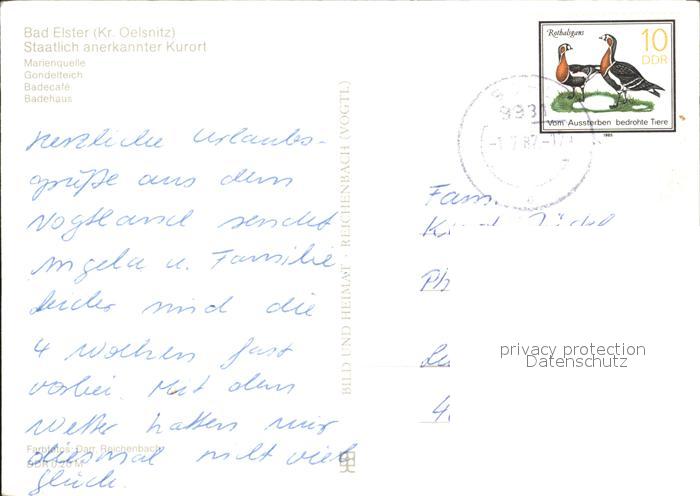 Bad Elster (Kr. Oelsnitz)
Staatlich anerkannter Kurort
Marienquelle
Gondelteich
Badecafé
Badehaus
Herzliche Urlaubs-
grüße aus dem
Vogtland sendet
Angela u. Familie
Leider sind die
4 Wochen fast
vorbei. Mit dem
Wetter hatten wir
diesmal nicht viel
Glück.
Farbfotos: Darr, Reichenbach
DDR 0.20 M
BILD UND HEIMAT · REICHENBACH (VOGTL)
Rothalsgans
10
DDR
Vom Aussterben bedrohte Tiere
1985
9931
-1.7.87-17
Fam.
privacy protection
Datenschutz